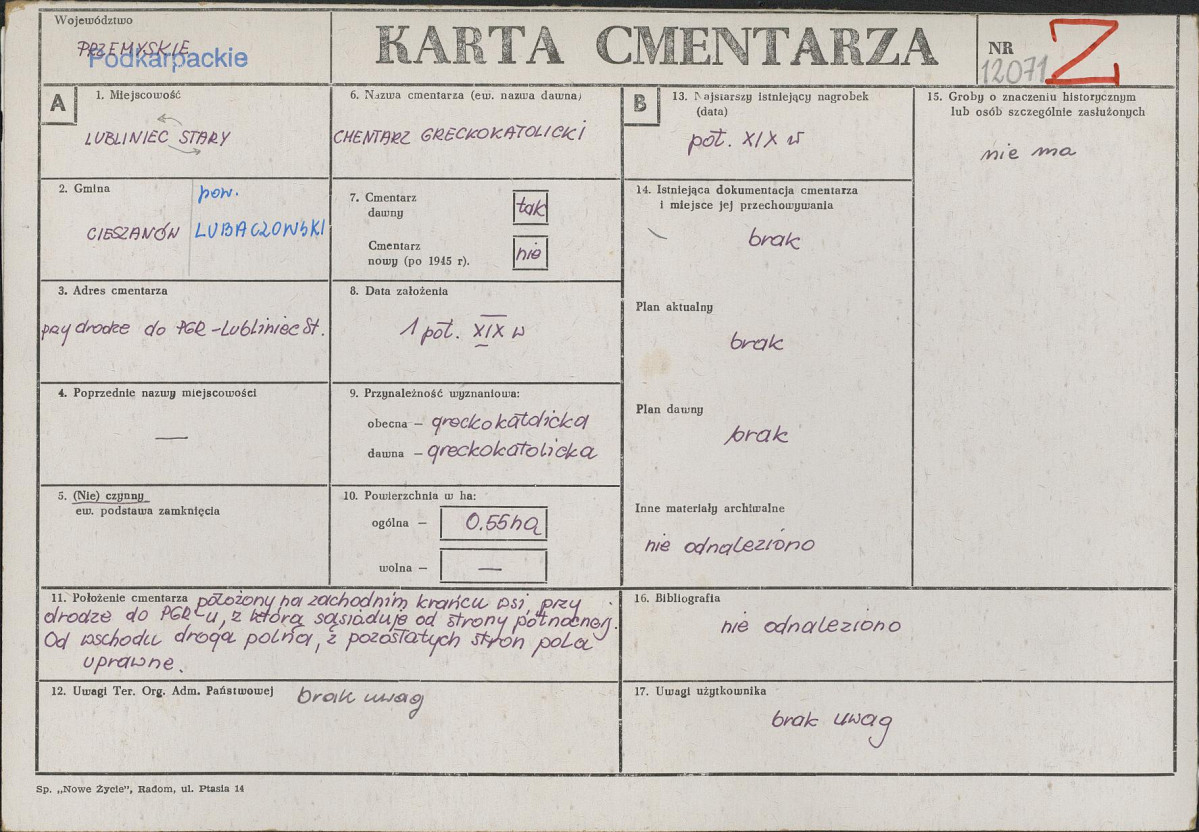 Województwo
PRZEMYSKIE
Podkarpackie
KARTA CMENTARZA
NR
12071
Z
A
1. Miejscowość
LUBLINIEC STARY
2. Gmina
CIESZANÓW
pow.
LUBACZOWSKI
3. Adres cmentarza
przy drodze do PGR-Lubliniec St.
4. Poprzednie nazwy miejscowości
—
5. (Nie) czynny
ew. podstawa zamknięcia
6. Nazwa cmentarza (ew. nazwa dawna)
CMENTARZ GRECKOKATOLICKI
7. Cmentarz
dawny
tak
Cmentarz
nowy (po 1945 r).
nie
8. Data założenia
1 poł. XIX w
9. Przynależność wyznaniowa:
obecna – greckokatolicka
dawna – greckokatolicka
10. Powierzchnia w ha:
ogólna – 0.55ha
wolna – —
B
13. Najstarszy istniejący nagrobek
(data)
poł. XIX w
14. Istniejąca dokumentacja cmentarza
i miejsce jej przechowywania
brak
Plan aktualny
brak
Plan dawny
brak
Inne materiały archiwalne
nie odnaleziono
15. Groby o znaczeniu historycznym
lub osób szczególnie zasłużonych
nie ma
11. Położenie cmentarza położony na zachodnim krańcu wsi, przy
drodze do PGR-u, z którą sąsiaduje od strony północnej.
Od wschodu droga polna, z pozostałych stron pola
uprawne.
12. Uwagi Ter. Org. Adm. Państwowej brak uwag
16. Bibliografia
nie odnaleziono
17. Uwagi użytkownika
brak uwag
Sp. „Nowe Życie”, Radom, ul. Ptasia 14